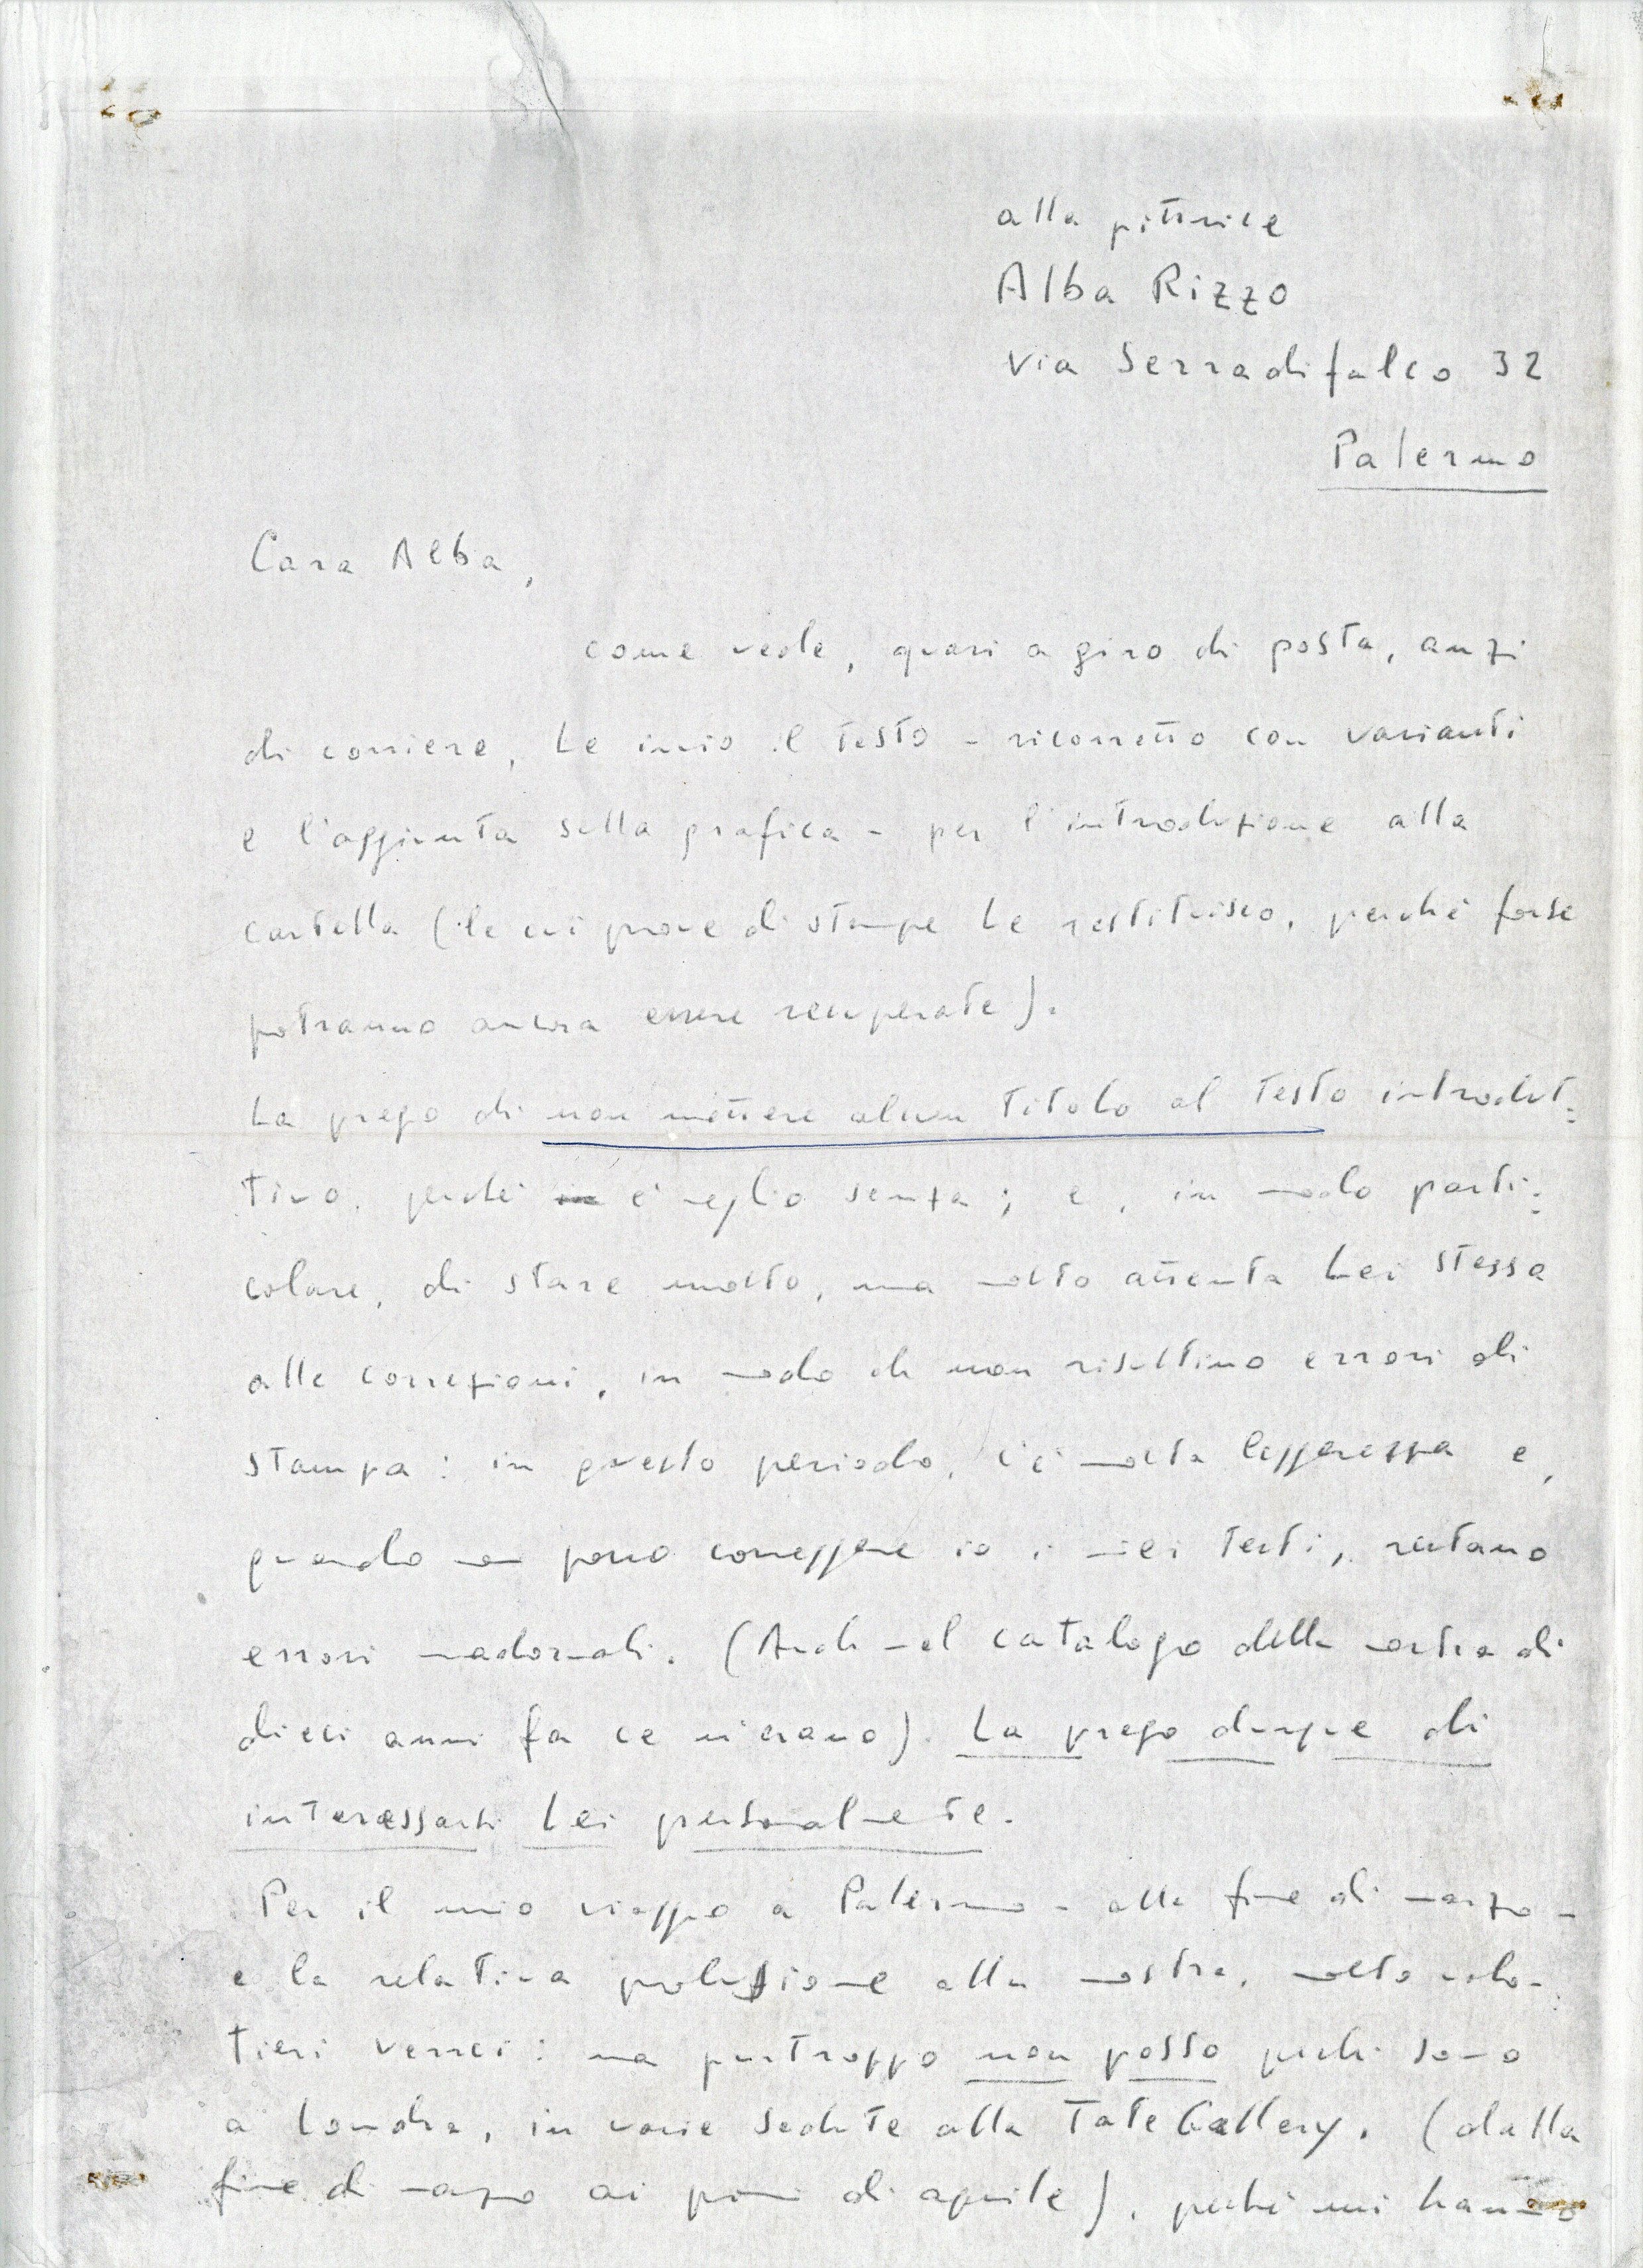 alla pittrice
Alba Rizzo
via Serradifalco 32
Palermo
Cara Alba,
come vede, quasi a giro di posta, anzi
di corriere, Le invio il testo - ricorretto con varianti
e l'aggiunta sulla grafica - per l'introduzione alla
cartella (le cui prove di stampe Le restituisco, perché forse
potranno ancora essere recuperate).
La prego di non mettere alcun titolo al testo introdut=
tivo, perché è meglio senza; e, in modo parti=
colare, di stare molto, ma molto attenta Lei stessa
alle correzioni, in modo che non risultino errori di
stampa: in questo periodo, c'è molta leggerezza e,
quando non posso correggere io i miei testi, restano
errori madornali. (Anche nel catalogo della mostra di
dieci anni fa ce n'erano). La prego dunque di
interessarsi Lei personalmente.
Per il mio viaggio a Palermo - alla fine di marzo -
e la relativa prolusione alla mostra, molto volo=
tieri verrei: ma purtroppo non posso perché sono
a Londra, in varie sedute alla Tate Gallery, (dalla
fine di marzo ai primi di aprile), perché mi hanno